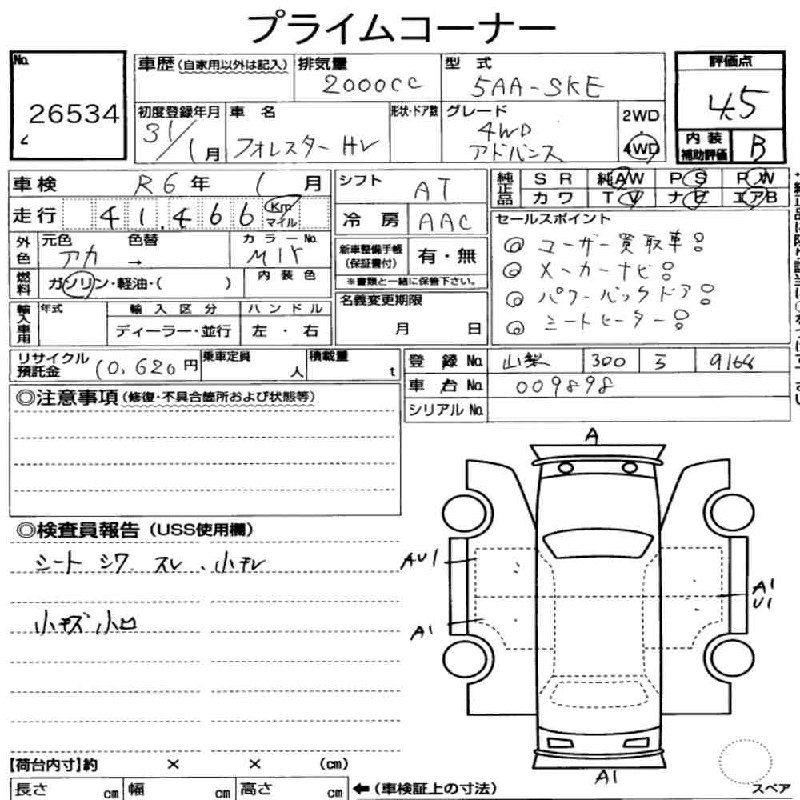 プライムコーナー
No. 26534
車歴 (自家用以外は記入) 排気量 2000cc 型式 5AA-SKE 評価点 4.5
初度登録年月 31/1月 車名 フォレスター HV 形状・ドア数 グレード 4WD アドバンス 2WD 4WD 内装補助評価 B
車検 R6年 1月 シフト AT 純正品 SR 純AW PS R/W
カワ TV ナビ エアB
走行 41,466 Km マイル 冷房 AAC
セールスポイント
外色 元色 アカ 色替 → カラーNo. M1Y 内装色
新車整備手帳 (保証書付) 有・無
※書類と一緒に保管下さい。
◎ ユーザー買取車!
◎ メーカーナビ!
◎ パワーバックドア!
◎ シートヒーター!
燃料 ガソリン・軽油・( )
名義変更期限 月 日
輸入車用 年式 輸入区分 ハンドル
ディーラー・並行 左・右
リサイクル預託金 10,620円 乗車定員 人 積載量 t
登録No. 山梨 300 ふ 9164
車台No. 009898
シリアルNo.
◎注意事項 (修復・不具合箇所および状態等)
◎検査員報告 (USS使用欄)
シート シワ スレ 、小ヨレ
小キズ 小凹
A
AU1
A1
A1
U1
A1
【荷台内寸】約 × × (cm)
長さ cm 幅 cm 高さ cm
←(車検証上の寸法)
スペア